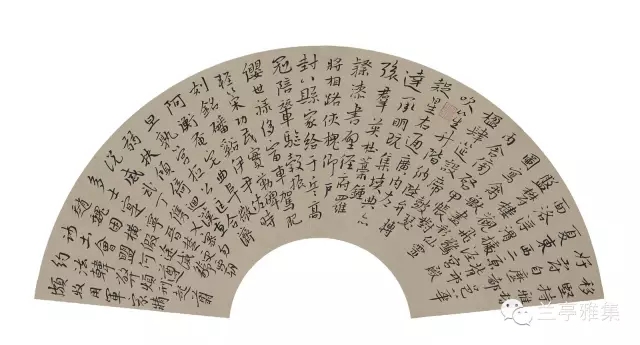 移堅持雅操
好爵自縻都邑華
夏東西二京背邙
面洛浮渭據涇宮殿
盤鬱樓觀飛驚
圖寫禽獸畫彩仙靈
丙舍傍啟甲帳對
楹肆筵設席鼓瑟
吹笙升階納陛弁轉
疑星右通廣內左
達承明既集墳典亦
聚羣英杜藁鍾
隸漆書壁經府羅
將相路俠槐卿戶
封八縣家給千兵高
冠陪輦驅轂振
纓世祿侈富車駕肥
輕策功茂實勒碑
刻銘磻谿伊尹佐時
阿衡奄宅曲阜微
旦孰營桓公匡合濟
弱扶傾綺迴漢惠
說感武丁俊乂密勿
多士寔寧晉楚更霸
趙魏困橫假途滅虢
踐土會盟何遵
約法韓弊煩刑起翦
頗牧用軍最精
兰亭雅集